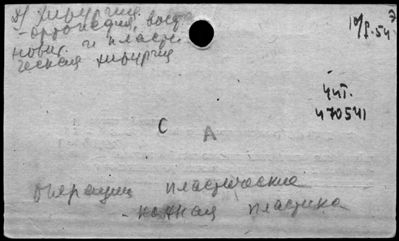 д/ хирургия
- ортопедия, восст
новит. и пласти
ческая хирургия
10/X-54
чит.
470541
С А
операции пластические
- кожная пластика